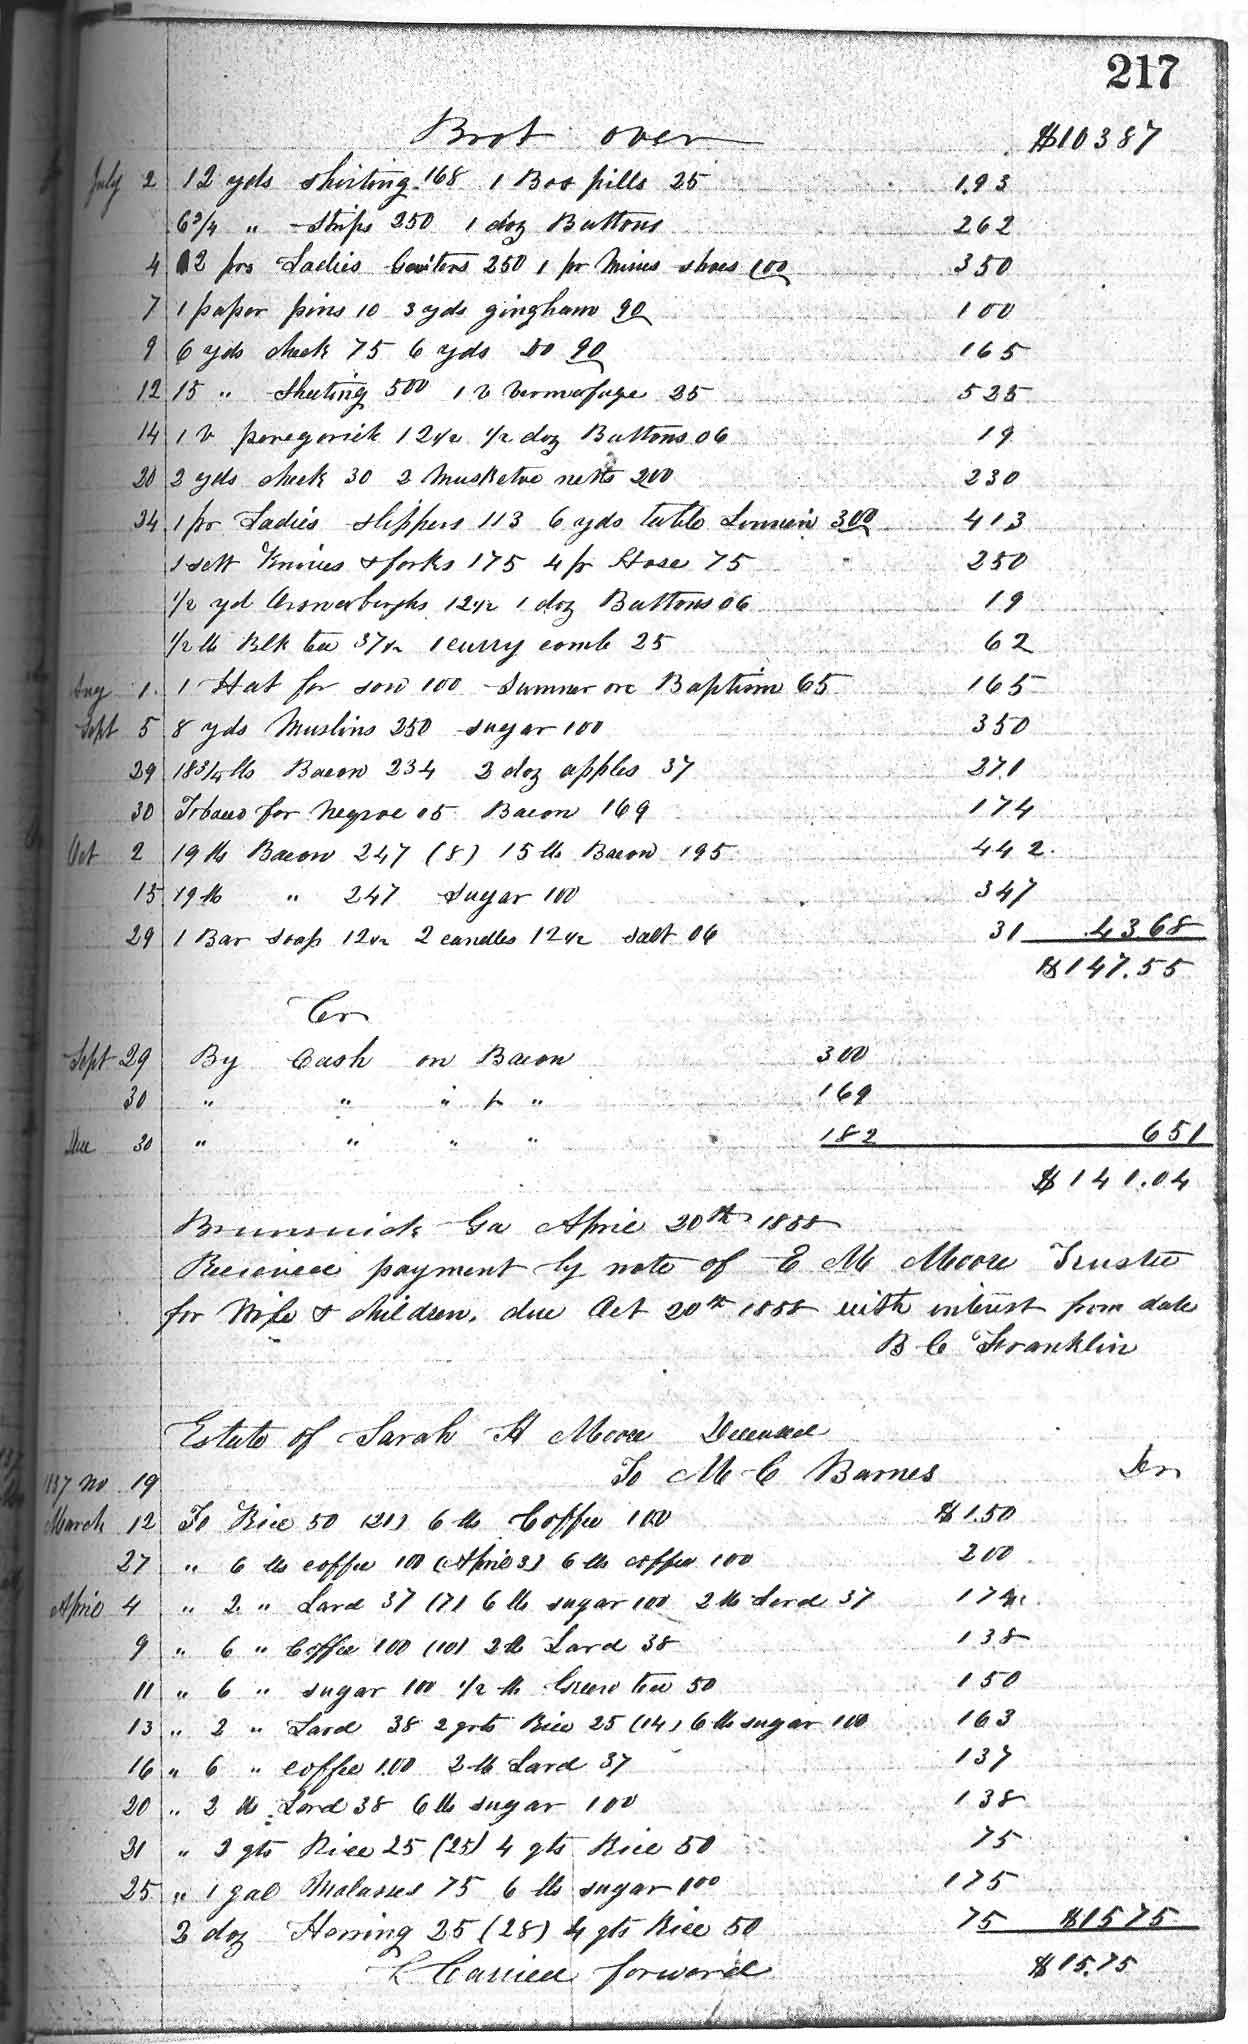 217
Brot over $103 87
July 2 12 yds shirting 168 1 Box pills 25 1.93
6 3/4 " Strips 250 1 doz Buttons 262
4 2 prs Ladies Gaiters 250 1 pr Misses shoes 100 350
7 1 paper pins 10 3 yds gingham 90 100
9 6 yds check 75 6 yds do 90 165
12 15 " Sheeting 500 1 v Vermefuge 25 525
14 1 v peregorick 12 1/2 1/2 doz Buttons 06 19
20 2 yds check 30 2 Musketoe netts 200 230
24 1 pr Ladies slippers 113 6 yds table Linnein 300 413
1 sett Knives & forks 175 4 pr Hose 75 250
1/2 yd 12 1/2 1 doz Buttons 06 19
1/2 lb Blk tea 37 1/2 1 curry comb 25 62
Aug 1 1 Hat for son 100 Sumner on Baptism 65 165
Sept 5 8 yds Muslins 250 sugar 100 350
29 18 3/4 lbs Bacon 234 2 doz apples 37 271
30 Tobaco for Negroe 05 Bacon 169 174
Oct 2 19 lb Bacon 247 (8) 15 lb Bacon 195 442
15 19 lb " 247 sugar 100 347
29 1 Bar soap 12 1/2 2 candles 12 1/2 salt 06 31 43.68
$147.55
Cr
Sept 29 By Cash on Bacon 300
30 " " " " 169
Dec 30 " " " " 182 651
$141.04
Brunswick Ga April 20th 1858
Received payment by note of E M Moore Trustee
for Wife & children, due Oct 20th 1858 with interest from date
B C Franklin
Estate of Sarah H Moore Deceased
To M C Barnes Dr
1857 No 19
March 12 To Rice 50 (21) 6 lb Coffee 100 $1.50
27 " 6 lbs coffee 100 (April 3) 6 lb coffee 100 200
April 4 " 2 " Lard 37 (7) 6 lb sugar 100 2 lb Lard 37 174
9 " 6 " Coffee 100 (10) 2 lb Lard 38 138
11 " 6 " sugar 100 1/2 lb Green tea 50 150
13 " 2 " Lard 38 2 qrts Rice 25 (14) 6 lb sugar 100 163
16 " 6 " coffee 1.00 2 lb Lard 37 137
20 " 2 lb Lard 38 6 lb sugar 100 138
21 " 2 qts Rice 25 (25) 4 qts Rice 50 75
25 " 1 gal Malasses 75 6 lb sugar 100 175
2 doz Herring 25 (28) 4 qts Rice 50 75 $1575
Carried forward $15.75